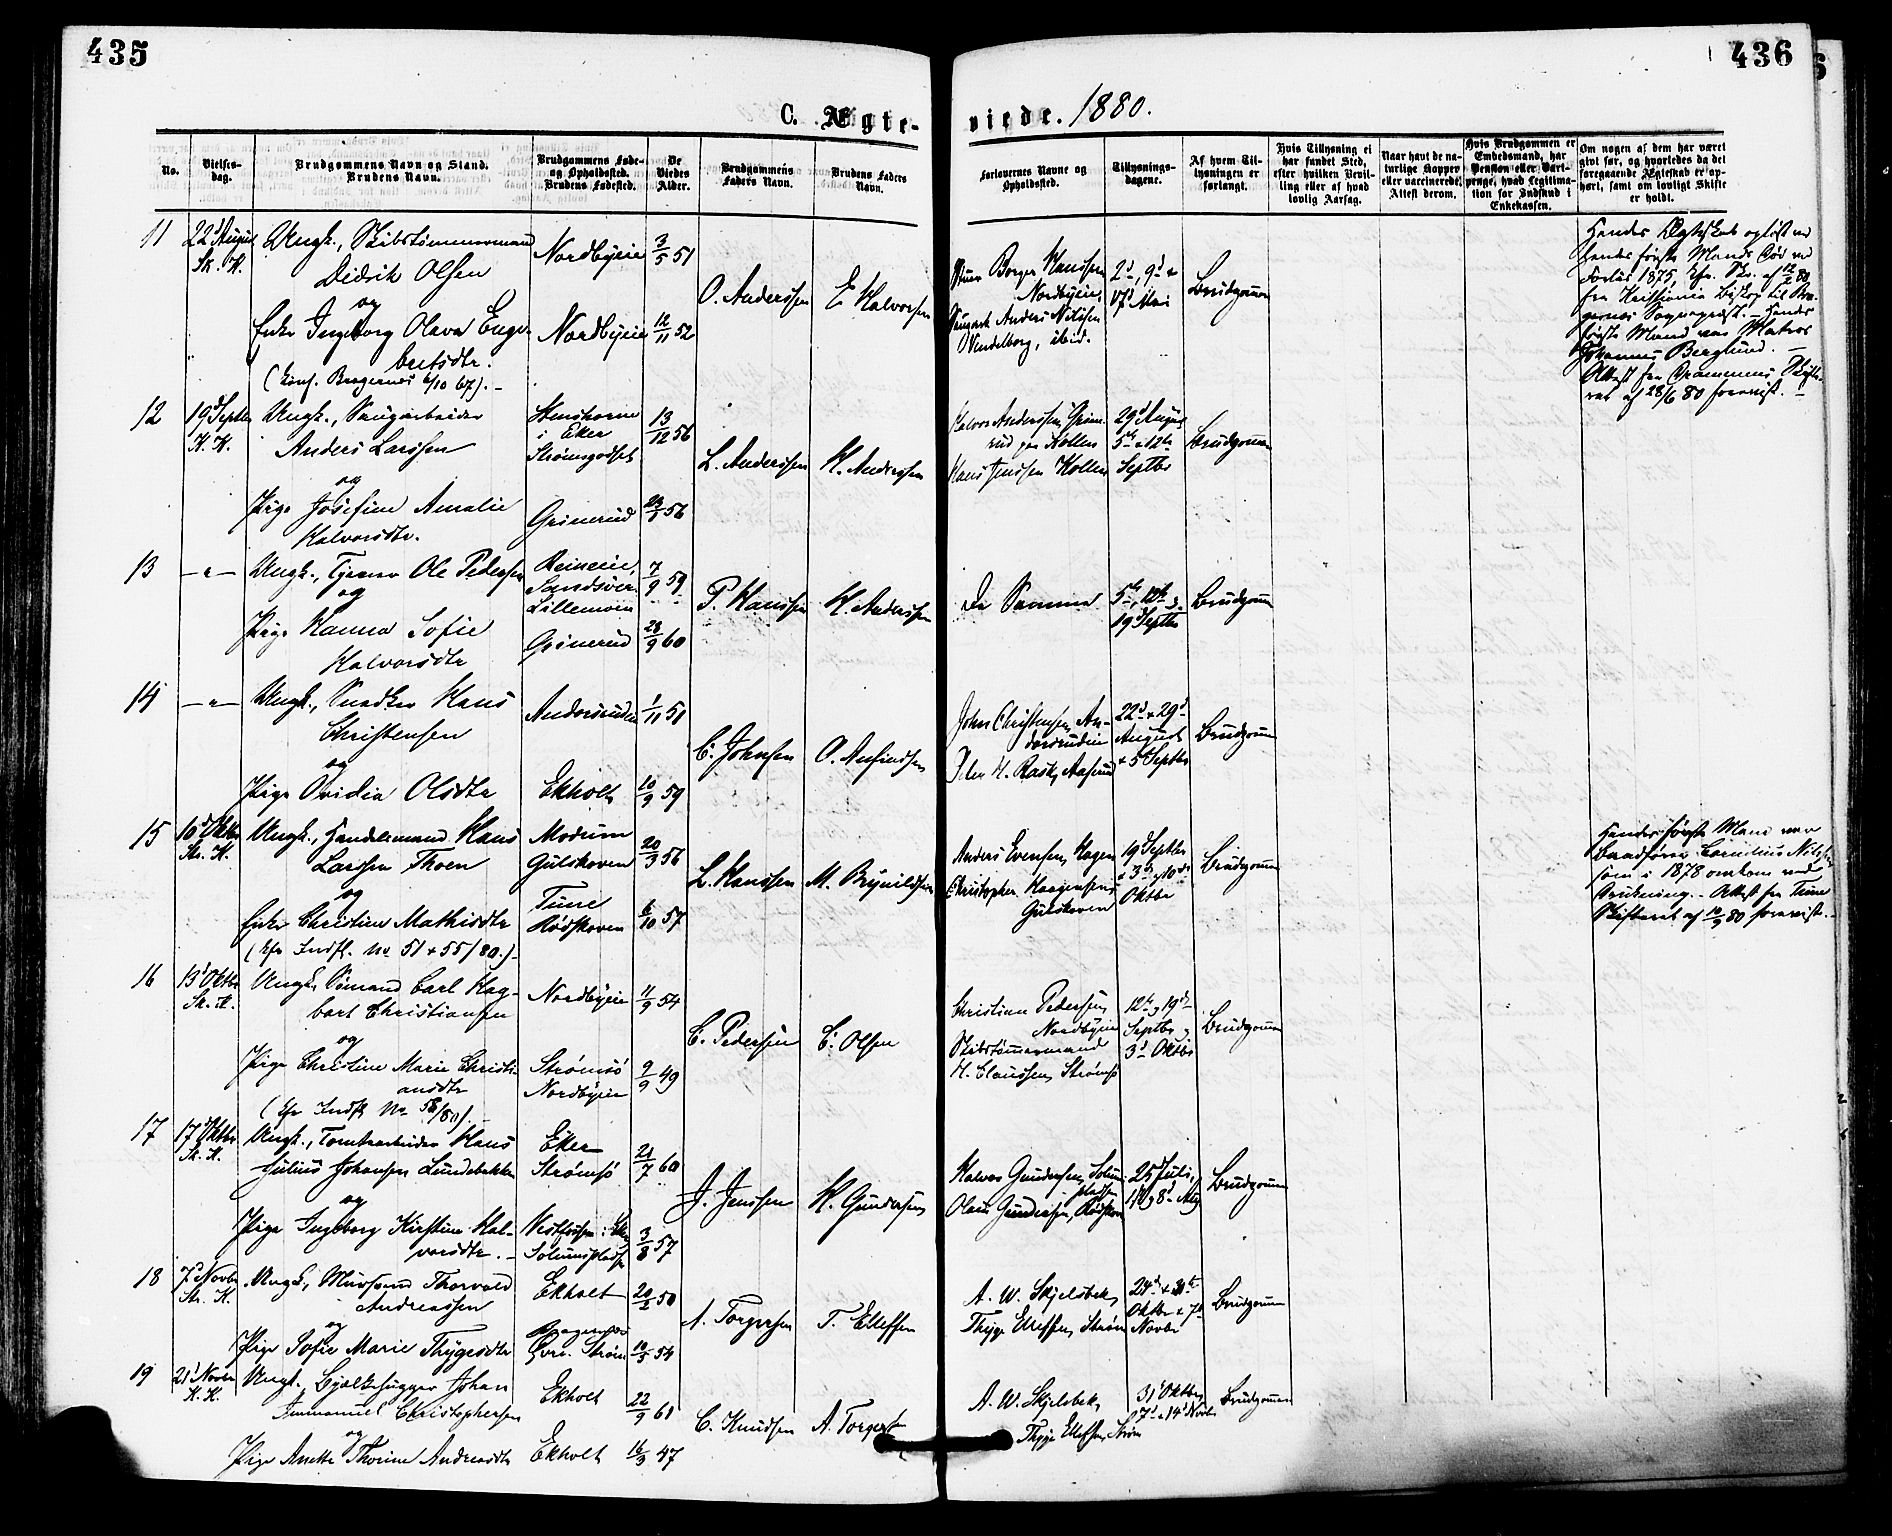 435
436
C. Ægte-
viede. 1880.
No.
Vielses-
dag.
Brudgommens Navn og Stand.
Brudens Navn.
Brudgommens Føde-
og Opholdssted.
Brudens Fødested.
De
Viedes
Alder.
Brudgommens
Faders Navn.
Brudens Faders
Navn.
Forlovernes Navne og
Opholdssted.
Tillysnings-
dagene.
Af hvem Til-
lysningen er
forlangt.
Hvis Tillysning ei
har fundet Sted,
efter hvilken Bevil-
ling eller af hvad
lovlig Aarsag.
Naar havt de na-
turlige Kopper
eller vaccinerede.
Attest derom.
Hvis Brudgommen er
Embedsmand, har
Pension eller Vart-
penge, hvad Legitima-
tion for Indskud i
Enkekassen.
Om nogen af dem har været
givt før, og hvorledes da det
foregaaende Ægteskab er op-
hørt, samt om lovligt Skifte
er holdt.
11 22d August
St. K.
Ungk., Skibstømmermand
Didrik Olsen
og
Enke Ingeborg Olava Enge-
bretsdtr.
(Conf. Bragernes 6/10 67). -
Nordbyeie
Nordbyeie
3/5 51
12/11 52
O. Anderssen
E Halvorsen
Borger Hanssen
Nordbyeie,
Anders Nilssen
Vendelborg, ibid.
2d, 9d &
17d Mai
Brudgommen
Hendes Ægteskab opløst ved
hendes første Mands Død ved
Forlis 1875, Efr. Skr. af 12/2 80
fra Kristiania Biskop til Bra-
gernes Sognepræst. - Hendes
første Mand var Matros
Johannes Berglund. -
Attest fra Drammens Skifte-
ret af 28/6 80 forevist. -
12 19d Septbr
K. K.
Ungk., Saugarbeider
Anders Larssen
og
Pige Josefine Amalie
Halvorsdtr.
Stenshorne
i Eker
Strømsgodset
Grinerud
13/12 56
56
L. Anderssen
H. Anderssen
Halvor Anderssen, Grine-
rud paa Kollen
Hans Jenssen Kollen
29d August
5te & 12te
Septbr
Brudgommen
13 - " -
Ungk., Ole Pedersen
og
Pige Hanna Sofie
Halvorsdtr
Sandsvær
Lillemoen
Grinerud
7/9 59
28/9 60
P. Hanssen
H. Anderssen
De Samme
5te, 12te &
19d Septbr
Brudgommen
14 - " -
Ungk., Snedker Hans
Christensen
og
Pige Ovidia Olsdtr
Andorsrudeie
Ekholt
1/11 51
10/9 59
C. Johnsen
O. Anfindsen
John Christensen, An-
dorsrudeie
Peder H. Rask, Aaserud
22d & 29d
August
& 5te Septbr
Brudgommen
15 10d Oktbr
St. K.
Ungk., Handelsmand Hans
Larssen Thoen
og
Enke Christine Mathisdtr
(Efr Indfl. No 51 & 55/80.) -
Modum
Gulskoven
Tune
Rødskoven
20/3 56
6/10 57
L. Hanssen
M. Brynildsen
Anders Evensen, Hagen
Christopher Haagensen,
Gulskoven
19d Septbr
& 3d, & 10de
Oktbr
Brudgommen
Hendes første Mand var
Baadfører Cornelius Nilssen
som i 1878 omkom ved
Drukning. - Attest fra Tune
Skifteret af 10/9 80 forevist. -
16 13d Oktbr
St. K.
Ungk., Sømand Carl Hag-
bart Christiansen
og
Pige Christine Marie Christi-
ansdtr
(Efr Indfl. No 58/80). -
Nordbyeie
Strømsø
Nordbyeie
11/9 54
9/9 49
C. Pedersen
C. Olsen
Christian Pedersen,
Nordbyeie
Skibstømmermand
H. Claussen, Strømsø
12te, 19d
Septbr &
3d Oktbr
Brudgommen
17 17d Oktbr
St. K.
Ungk., Tomtearbeider Hans
Julius Johansen Lundebakke
og
Pige Ingeborg Kirstine Hal-
vorsdtr. -
Eker
Strømsø
Vestfossen i Eker
Solumspladsen
21/7 60
3/8 57
J. Jenssen
H. Gundersen
Halvor Gundersen, Solum-
pladsen
Olaus Gundersen, Rødskov
25d Juli,
1d & 8d Aug
Brudgommen
18 7d Novbr
St. K.
Ungk., Muursvend Thorvald
Andreassen
og
Pige Sofie Marie Thygesdtr
Ekholt
Bragernes
Øvre Strøm
20/2 50
10/5 54
A. Torgersen
T. Ellefsen
A. W. Skjelsbek,
Thyge Ellefsen, Strøm
24d & 31te
Oktbr & 7d
Novbr
Brudgommen
19 21d Novbr
K. K.
Ungk., Bjælkehugger Johan
Immanuel Christophersen
og
Pige Anette Thorine Andreasdtr
Ekholt
Ekholt
22/9 61
16/3 47
C. Knudsen
A. Torgersen
A. W. Skjelsbek,
Thyge Ellefsen, Strøm
31d Oktbr,
7d & 14d Novbr
Brudgommen